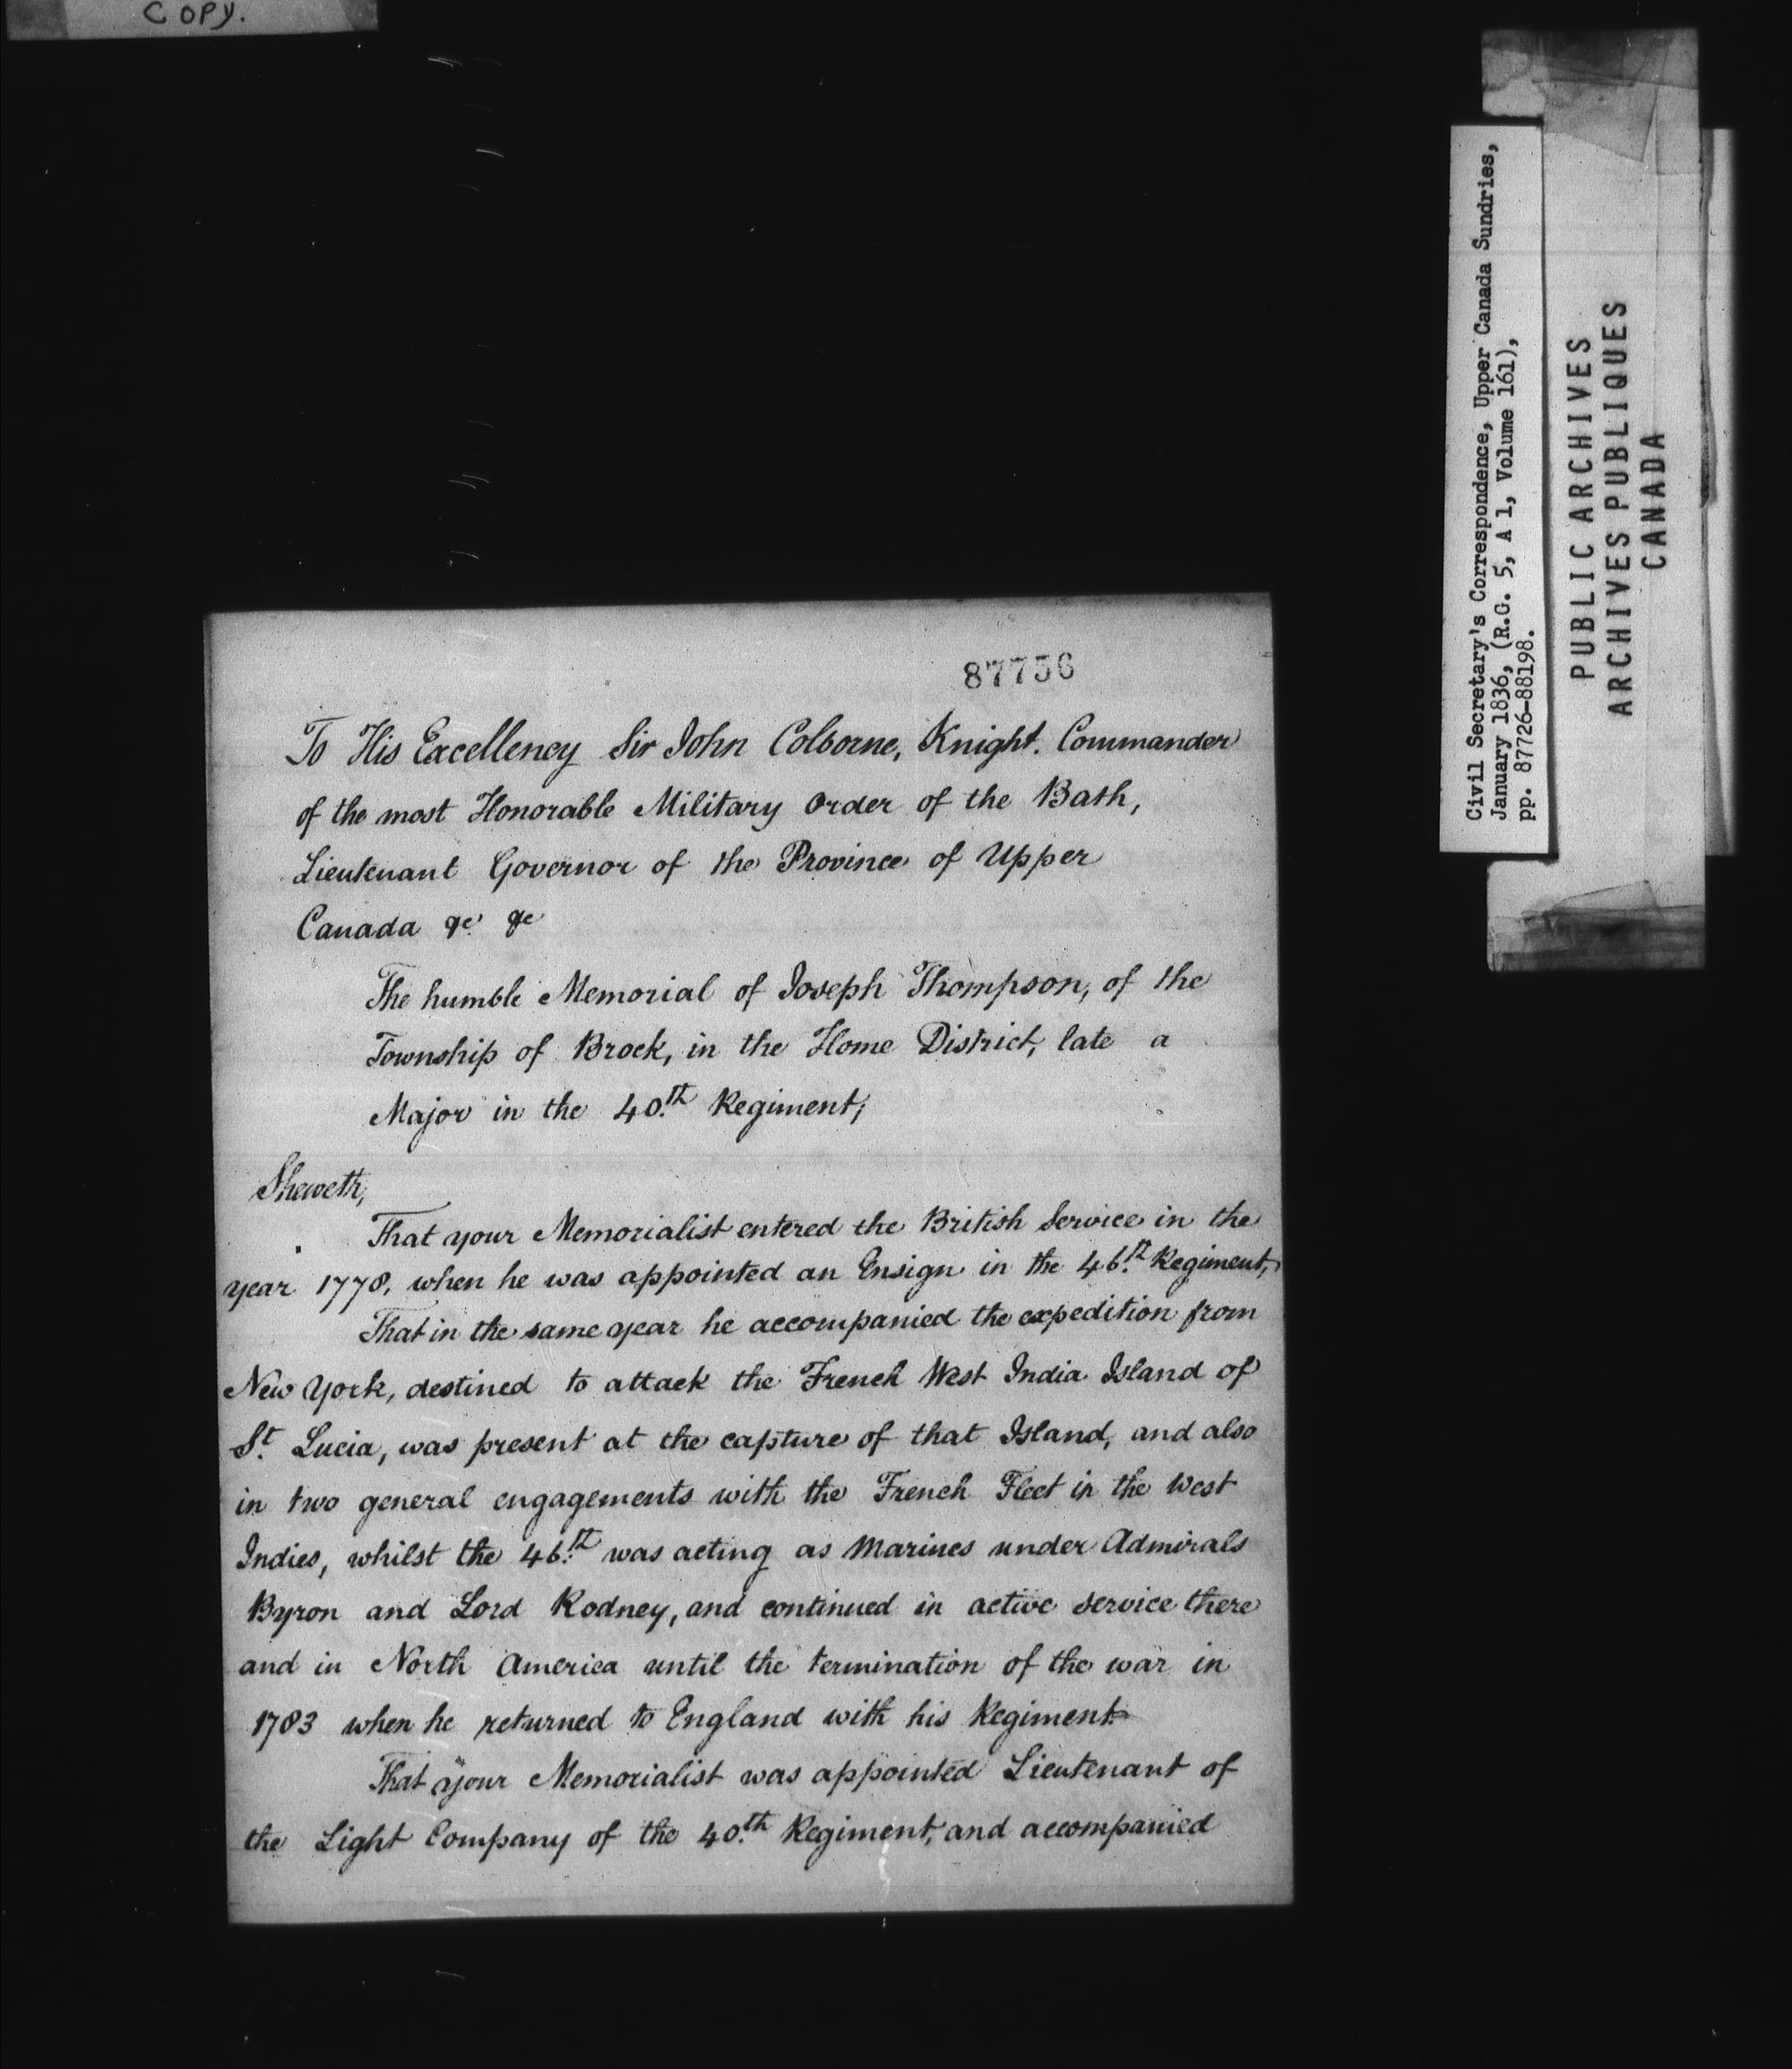 COPY.
87756
To His Excellency Sir John Colborne, Knight. Commander
of the most Honorable Military Order of the Bath,
Lieutenant Governor of the Province of Upper
Canada &c &c
The humble Memorial of Joseph Thompson, of the
Township of Brock, in the Home District, late a
Major in the 40.th Regiment;
Sheweth,
That your Memorialist entered the British Service in the
year 1778, when he was appointed an Ensign in the 46.th Regiment,
That in the same year he accompanied the expedition from
New York, destined to attack the French West India Island of
St. Lucia, was present at the capture of that Island, and also
in two general engagements with the French Fleet in the West
Indies, whilst the 46.th was acting as Marines under Admirals
Byron and Lord Rodney, and continued in active service there
and in North America until the termination of the war in
1783 when he returned to England with his Regiment.
That your Memorialist was appointed Lieutenant of
the Light Company of the 40.th Regiment, and accompanied
Civil Secretary's Correspondence, Upper Canada Sundries,
January 1836, (R.G. 5, A 1, Volume 161),
pp. 87726-88198.
PUBLIC ARCHIVES
ARCHIVES PUBLIQUES
CANADA